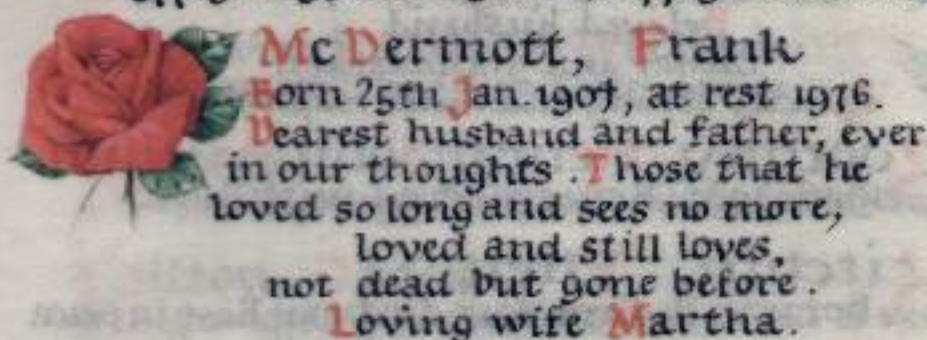 McDermott, Frank
Born 25th Jan. 1907, at rest 1976.
Dearest husband and father, ever
in our thoughts. Those that he
loved so long and sees no more,
loved and still loves,
not dead but gone before.
Loving wife Martha.